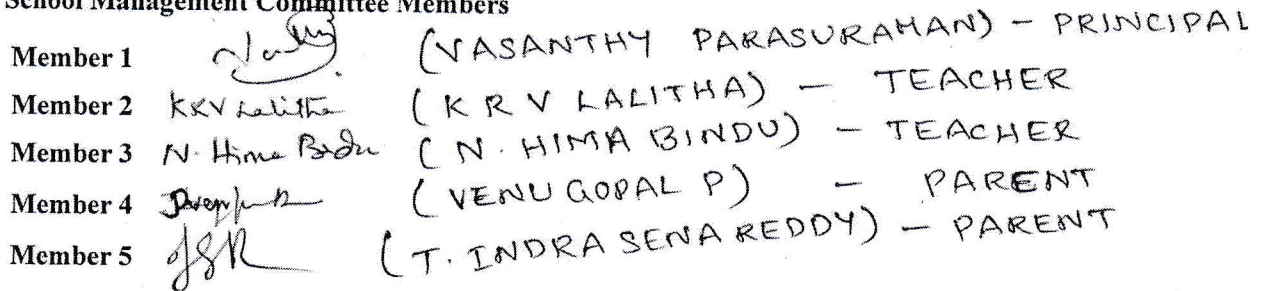 School Management Committee Members
Member 1 (VASANTHY PARASURAMAN) - PRINCIPAL
Member 2 KRV Lalitha (K R V LALITHA) - TEACHER
Member 3 N. Hima Bindu (N. HIMA BINDU) - TEACHER
Member 4 (VENU GOPAL P) - PARENT
Member 5 (T. INDRA SENA REDDY) - PARENT